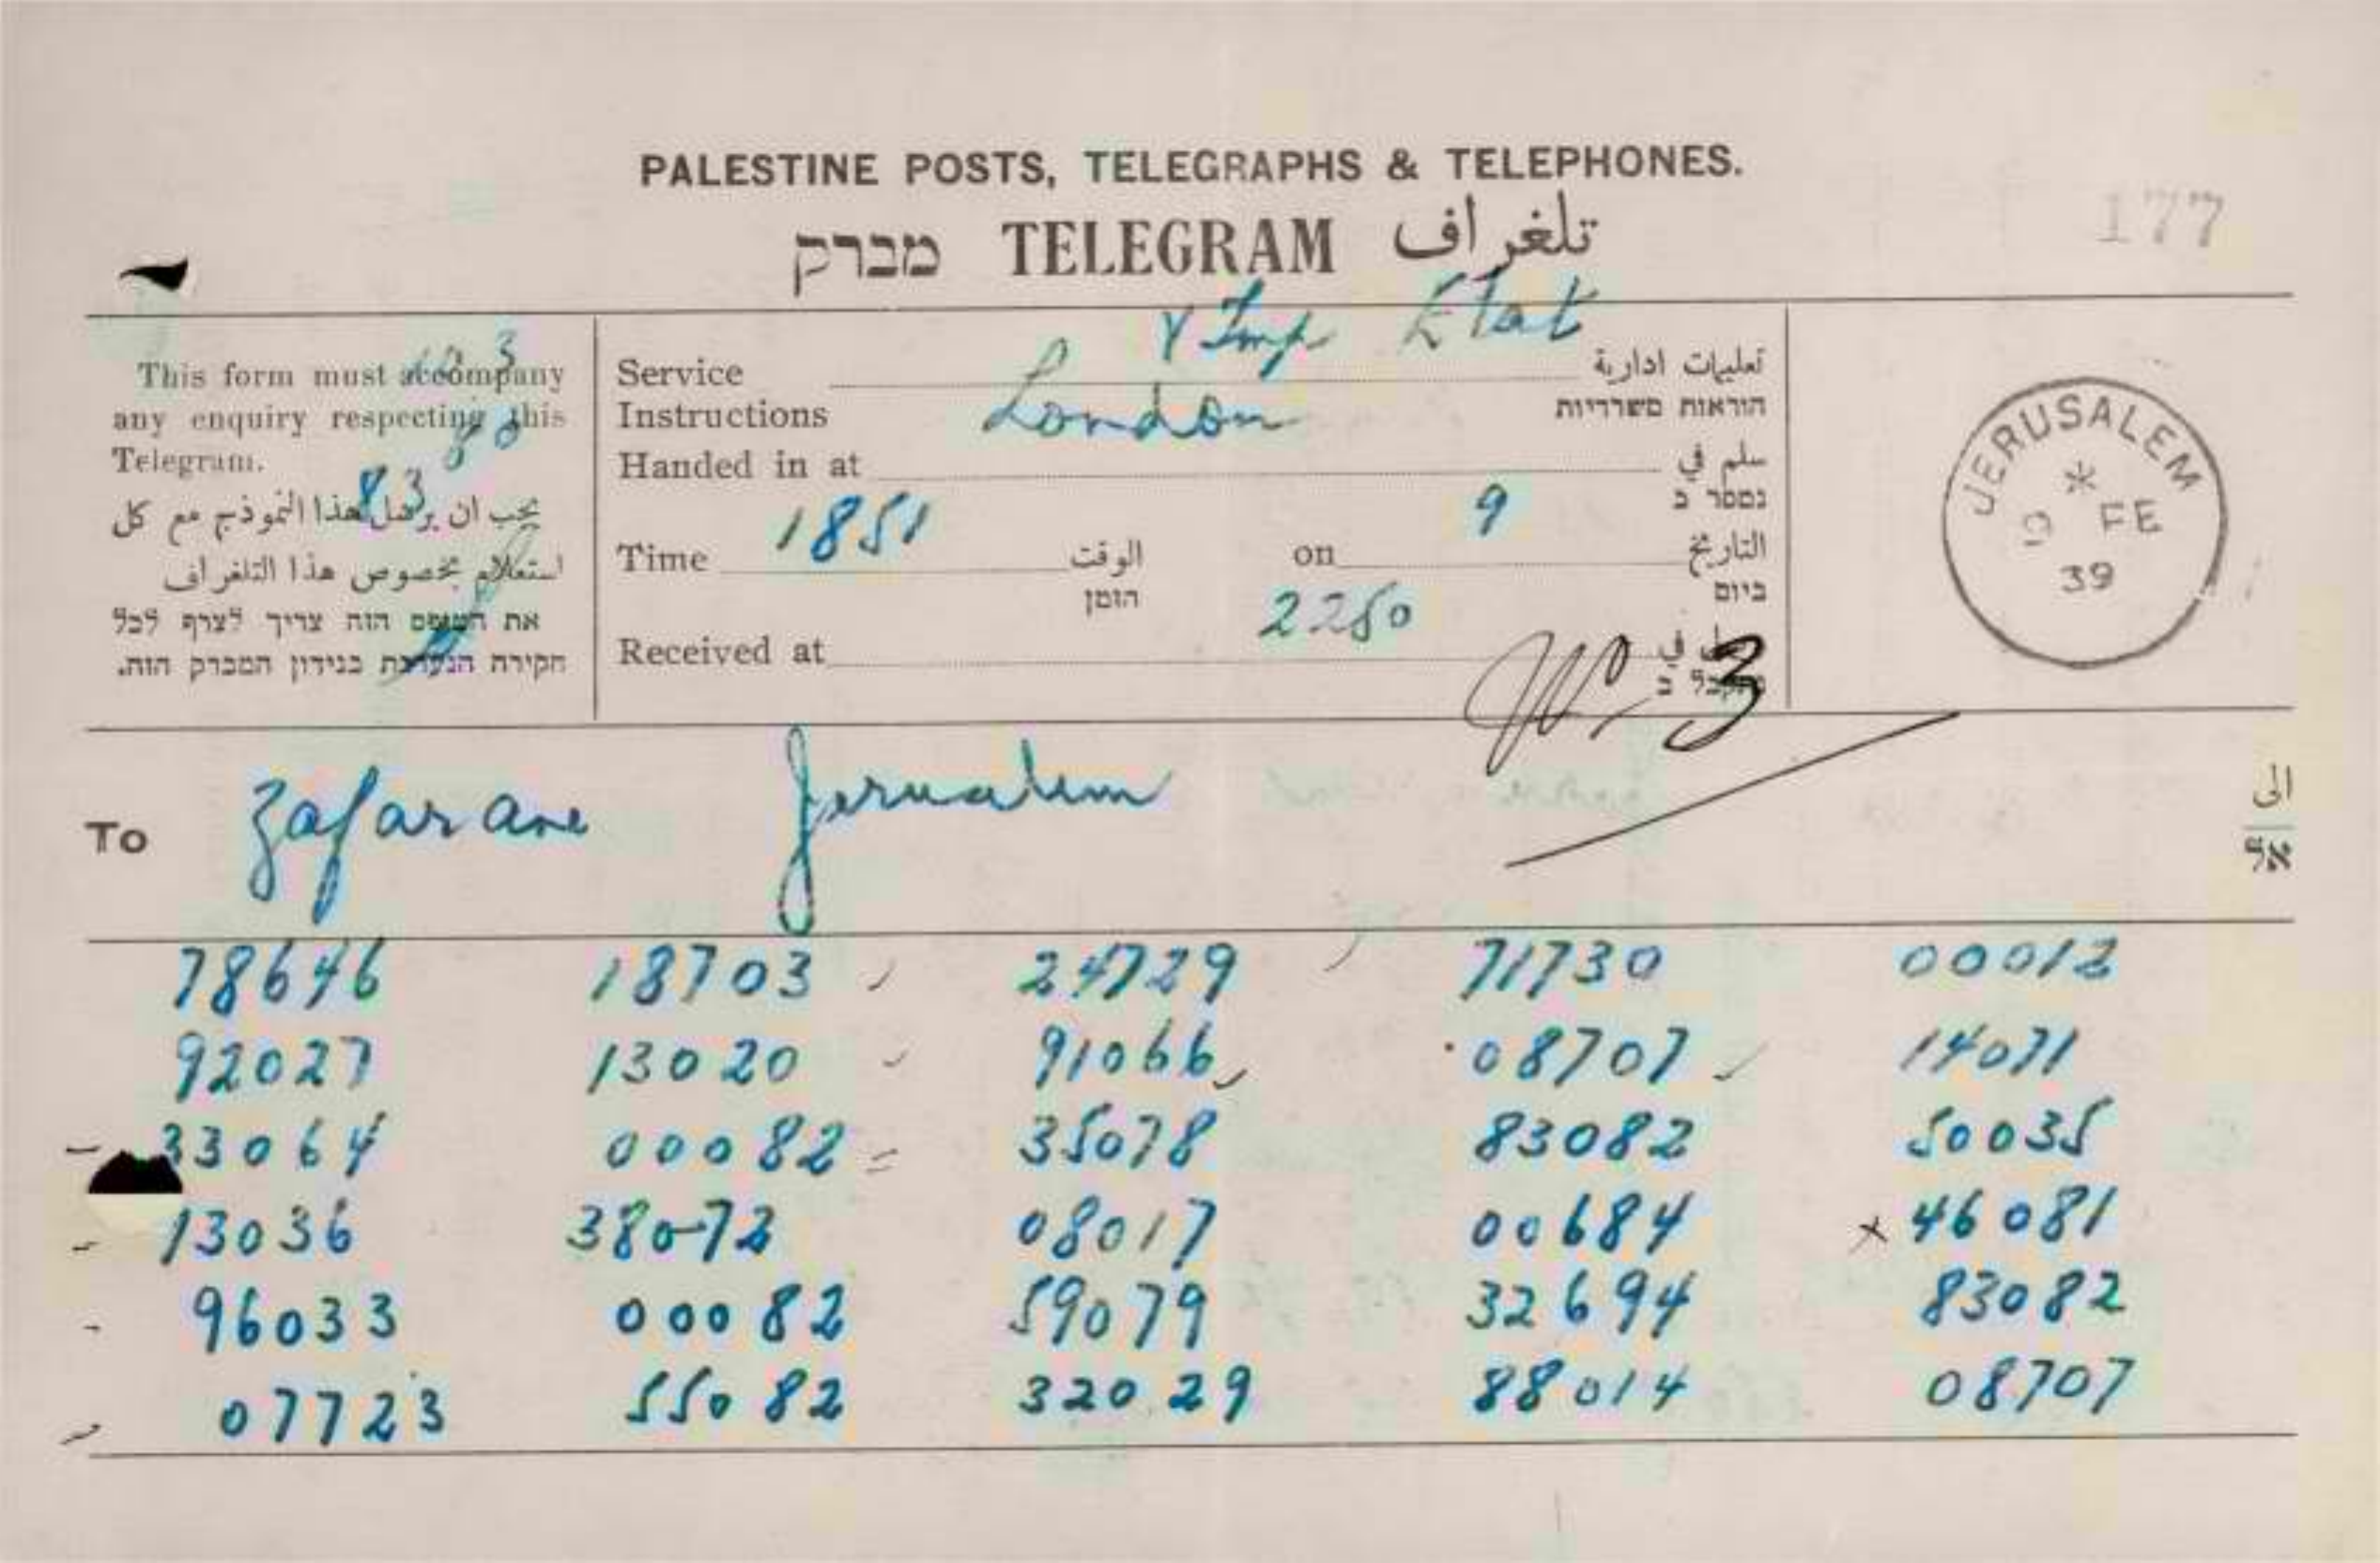 PALESTINE POSTS, TELEGRAPHS & TELEPHONES.
מברק TELEGRAM تلغراف
177
This form must accompany
any enquiry respecting this
Telegram.
يجب ان يرسل هذا النموذج مع كل
استعلام بخصوص هذا التلغراف
את הטופס הזה צריך לצרף לכל
חקירה הנערכת בנידון המברק הזה.
3
80
83
Imp Etat
Service
Instructions
تعليمات ادارية
הוראות משרדיות
London
Handed in at
سلم في
נמסר ב
Time 1851 الوقت
הזמן
on 9 التاريخ
ביום
Received at 2250
في
JERUSALEM
9 FE
39
3
To Zafarane Jerusalem الى
אל
78646 18703 24729 71730 00012
92027 13020 91066 08707 14071
33064 00082 35078 83082 50035
13036 38072 08017 00684 x 46081
96033 00082 59079 32694 83082
07723 55082 32029 88014 08707